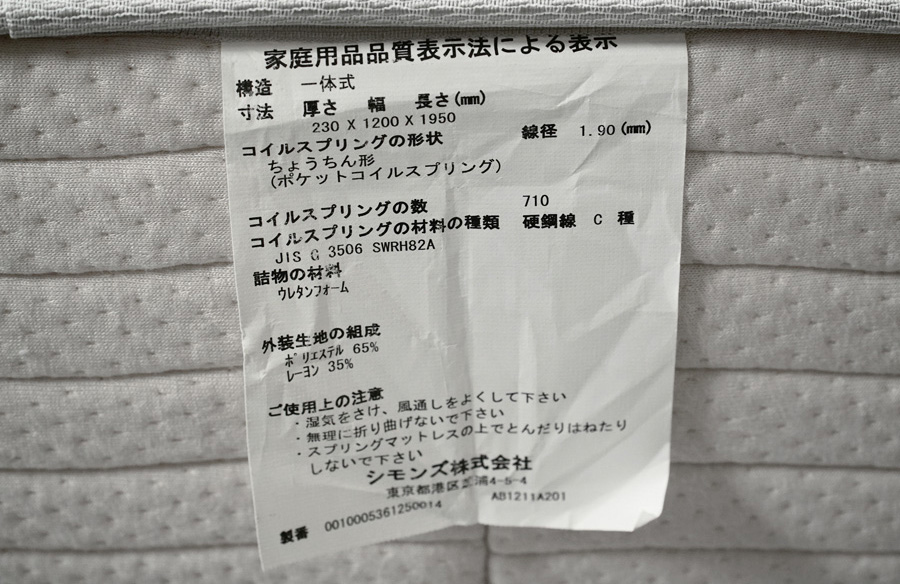 家庭用品品質表示法による表示
構造 一体式
寸法 厚さ 幅 長さ(mm)
230 X 1200 X 1950
コイルスプリングの形状 線径 1.90(mm)
ちょうちん形
(ポケットコイルスプリング)
コイルスプリングの数 710
コイルスプリングの材料の種類 硬鋼線 C 種
JIS G 3506 SWRH82A
詰物の材料
ウレタンフォーム
外装生地の組成
ポリエステル 65%
レーヨン 35%
ご使用上の注意
・湿気をさけ、風通しをよくして下さい
・無理に折り曲げないで下さい
・スプリングマットレスの上でとんだりはねたり
しないで下さい
シモンズ株式会社
東京都港区芝浦4-5-4
AB1211A201
製番 0010005361250014